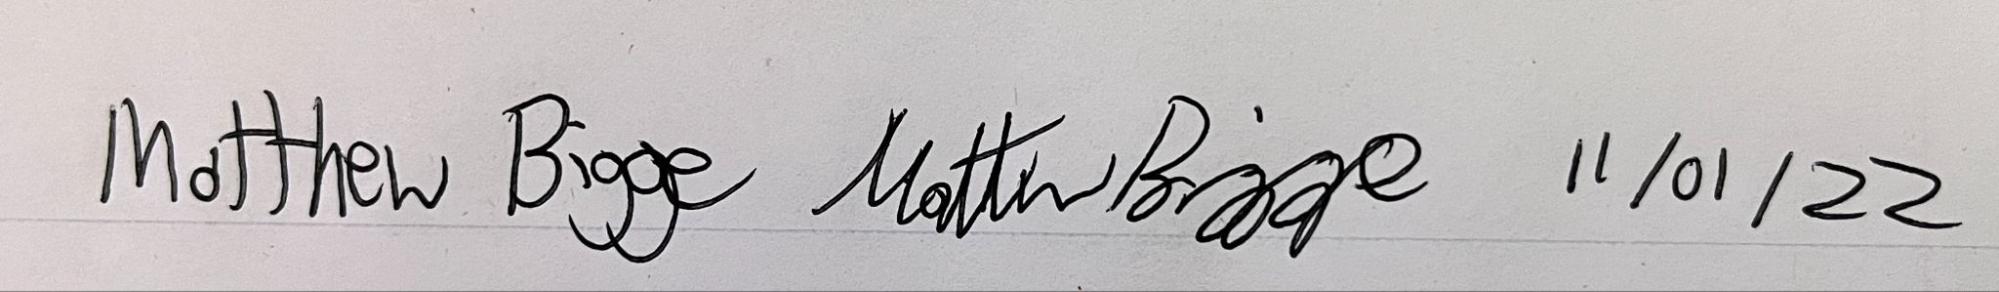 Matthew Bigge Matthew Bigge 11/01/22